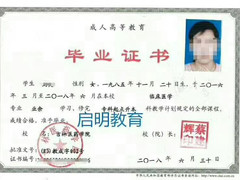 成人高等教育
毕业证书
学生 性别 女，一九八五年十一月二十日生，于二〇一六
年三月至二〇一八年六月在本校 临床医学
专业 业余 学习，修完 专科起点升本 科教学计划规定的全部课程，
成绩合格，准予毕业。
启明教育
校 名：吉林医药学院
校（院）长：
蔡建辉印
批准文号：
证书编号：
二〇一八年六月三十日